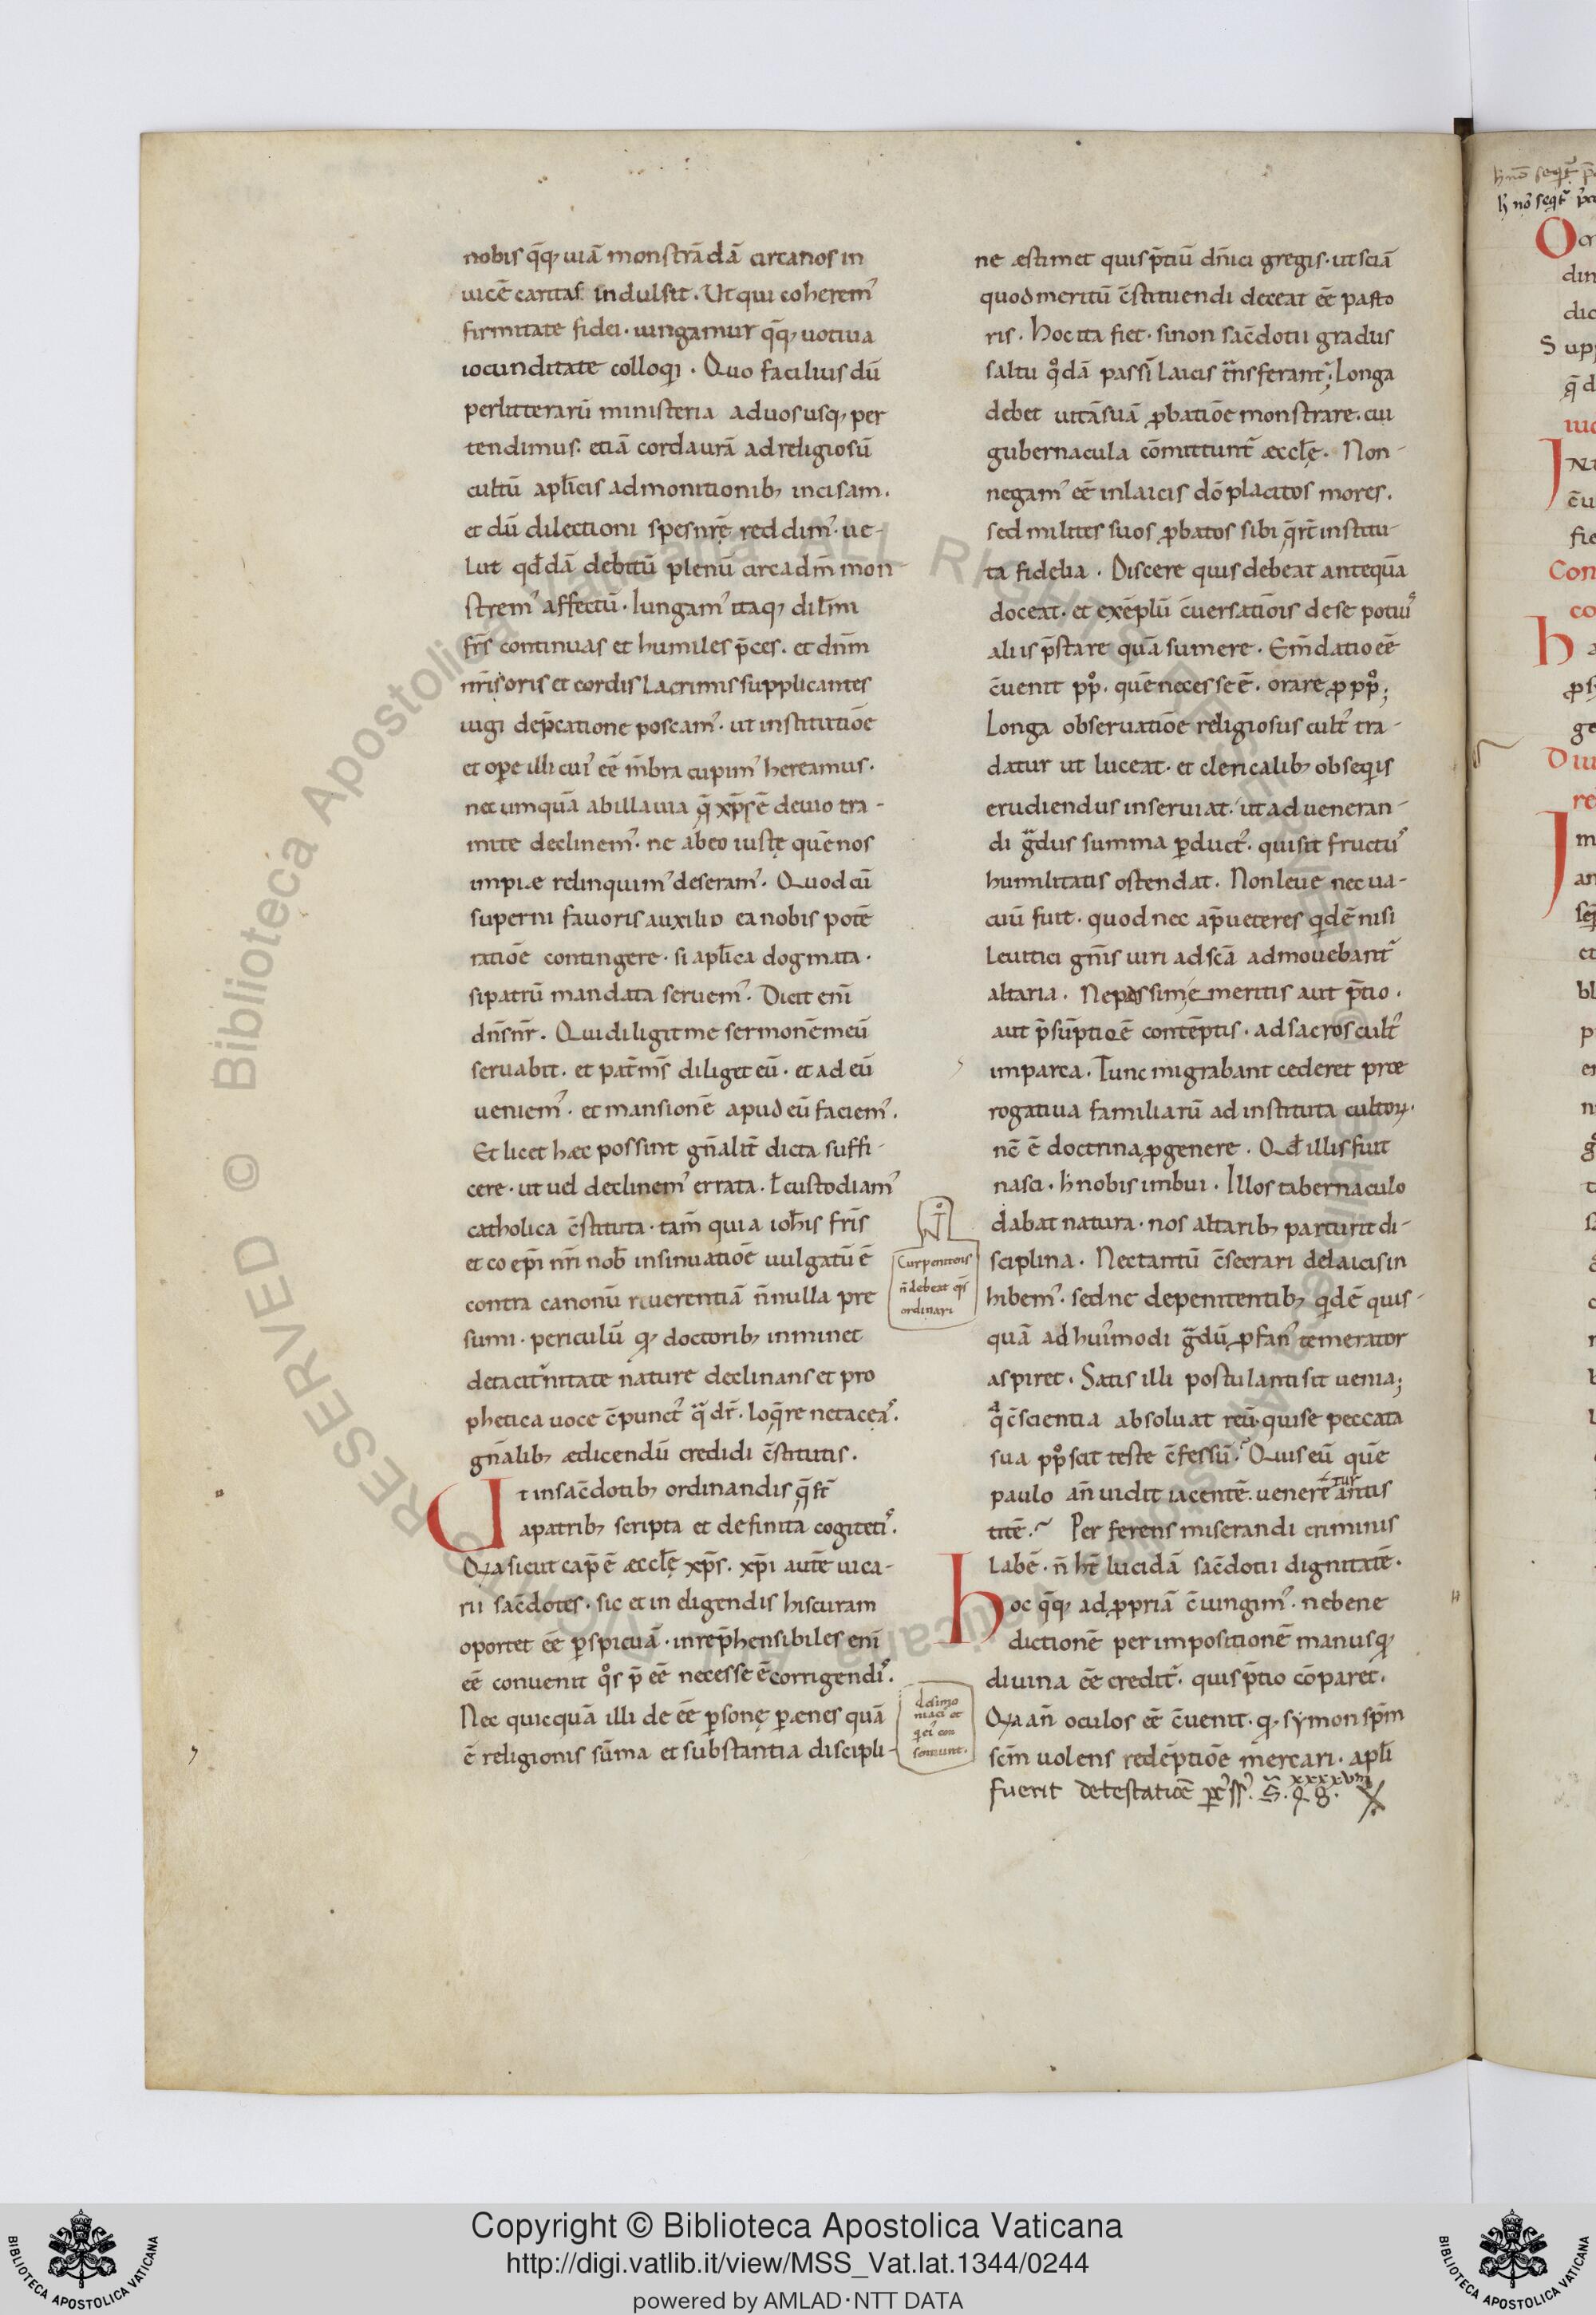 nobis q̄q; uiā monstrādā circanos in
uicē caritas indulsit. Ut qui coherem᾽
firmitate fidei. iungamur q̄q; uotiua
iocunditate colloqi. Quo facilius dū
perlitterarū ministeria aduosusq; per
tendimus. etiā cordaurā adreligiosū
cultū apl̄icis admonitionib; incisam.
et dū dilectioni spesnrę̄ reddim᾽. ue-
lut qđdā debitū plenū circadm̄ mon
strem᾽ affectū. Iungam᾽ itaq; dil̄mi
fr̄s continuas et humiles p̄ces. et dn̄m
nr̄is oris et cordis lacrimis supplicantes
iugi dep̄catione poscam᾽. ut institutiōe
et ope illi cui᾽ eē m̄bra cupim᾽ hereamus.
nec umquā abillauia q̄ xp̄s ē deuio tra-
mite declinem᾽. ne abeo iustę quē nos
impiæ relinquim᾽ deseram᾽. Quod cū
superni fauoris auxilio ea nobis potē
ratiōe contingere. si apl̄ica dogmata.
sipatrū mandata seruem᾽. Dicit eni̅
dn̄s nr̄. Qui diligit me sermonē meū
seruabit. et pat̄ m̄s diliget eū. et ad eū
ueniem᾽. et mansionē apud eū faciem᾽.
Et licet hæc possint gn̄alit̄ dicta suffi-
cere. ut uel declinem᾽ errata. ł custodiam᾽
catholica c̄stituta. tam̄ quia ioh̄is fr̄is
et coep̄i nr̄i nob̄ insinuatiōe uulgatū ē
contra canonū reuerentiā n̄nulla pre
sumi. periculū q; doctorib; inminet
detacit᾽nitate nature declinans et pro
phetica uoce c̄punct᾽ qa dr̄. loq̄re netacea᾽.
gn̄alib; ædicendū credidi c̄stitutis.
Ut insac̄dotib; ordinandis q̄ st̄
apatrib; scripta et definita cogiteti᾽.
Quia sicut cap̄ ē æccl̄ę xp̄s. xp̄i autē uica-
rii sac̄dotes. sic et in eligendis hiscuram
oportet eē pspicuā. inrep̄hensibiles eni̅
eē conuenit qos p̄ eē necesse ē corrigendi᾽.
Nec quicquā illi de eē psonę pænes quā
ē religionis sūma et substantia discipli-
ne æstimet quis p̄tiū dn̄ici gregis. ut sciā
quod meritū c̄stituendi deceat eē pasto
ris. Hoc ita fiet. sinon sac̄dotii gradus
saltu qodā passi̅ laicis tn̄sferant᾽; Longa
debet uitā suā pbatiōe monstrare. cui
gubernacula cōmittunt᾽ æccl̄ę. Non-
negam᾽ eē inlaicis dō placitos mores.
sed milites suos pbatos sibi q̄rt̄ institu-
ta fidelia. Discere quis debeat antequā
doceat. et exēplū c̄uersatiōis de se potiu᾽
aliis p̄stare quā sumere. Em̄datio eē
c̄uenit ppo. quē necesse ē. orare p ppo;
Longa obseruatiōe religiosus cult᾽ tra-
datur ut luceat. et clericalib; obseqis
erudiendus inseruiat. ut ad ueneran-
di gadus summa pduct᾽. qui sit fructu᾽
humilitatis ostendat. Non leue nec ua-
cuū fuit. quod nec ap̄ ueteres qdē nisi
leuitici gn̄is uiri adscā admouebant᾽
altaria. Ne passime meritis aut p̄tio.
aut p̄sūptiōē contēptis. ad sacros cult᾽
imparea. Tunc migrabant cederet præ
rogatiua familiarū ad instituta cultoꝝ.
nc̄ ē doctrina pgenere. Qđ illis fuit
nasci. h̄ nobis imbui. Illos tabernaculo
dabat natura. nos altarib; parturit di-
sciplina. Nec tantū c̄secrari de laicis in
hibem᾽. sed ne de penitentib; qdē quis-
quā ad hui᾽modi gadū pfan᾽ temerator
aspiret. Satis illi postulanti sit uenia;
qa c̄scientia absoluat reū. qui se peccata
sua ppo scit teste c̄fessū? Quis eū quē
paulo an̄ uidit iacentē. uenerētur antis
titē? Per ferens miserandi criminis
labē. n̄ ht̄ lucidā sac̄dotii dignitatē.
Hoc q̄q; ad ppriā c̄iungim᾽. ne bene
dictionē per impositionē manus q;
diuina eē credit᾽. quis p̄tio cōparet.
Quia an̄ oculos eē c̄uenit. q; sỳmon sp̄m
sc̄m uolens redēptiōe mercari. apl̄i
fuerit detestatiōē
Carpentrois
n̄ debeat qs
ordinari
desimo
niaci et
qi ei con
sentiunt.
Copyright © Biblioteca Apostolica Vaticana
http://digi.vatlib.it/view/MSS_Vat.lat.1344/0244
powered by AMLAD·NTT DATA
BIBLIOTECA APOSTOLICA VATICANA
BIBLIOTECA APOSTOLICA VATICANA